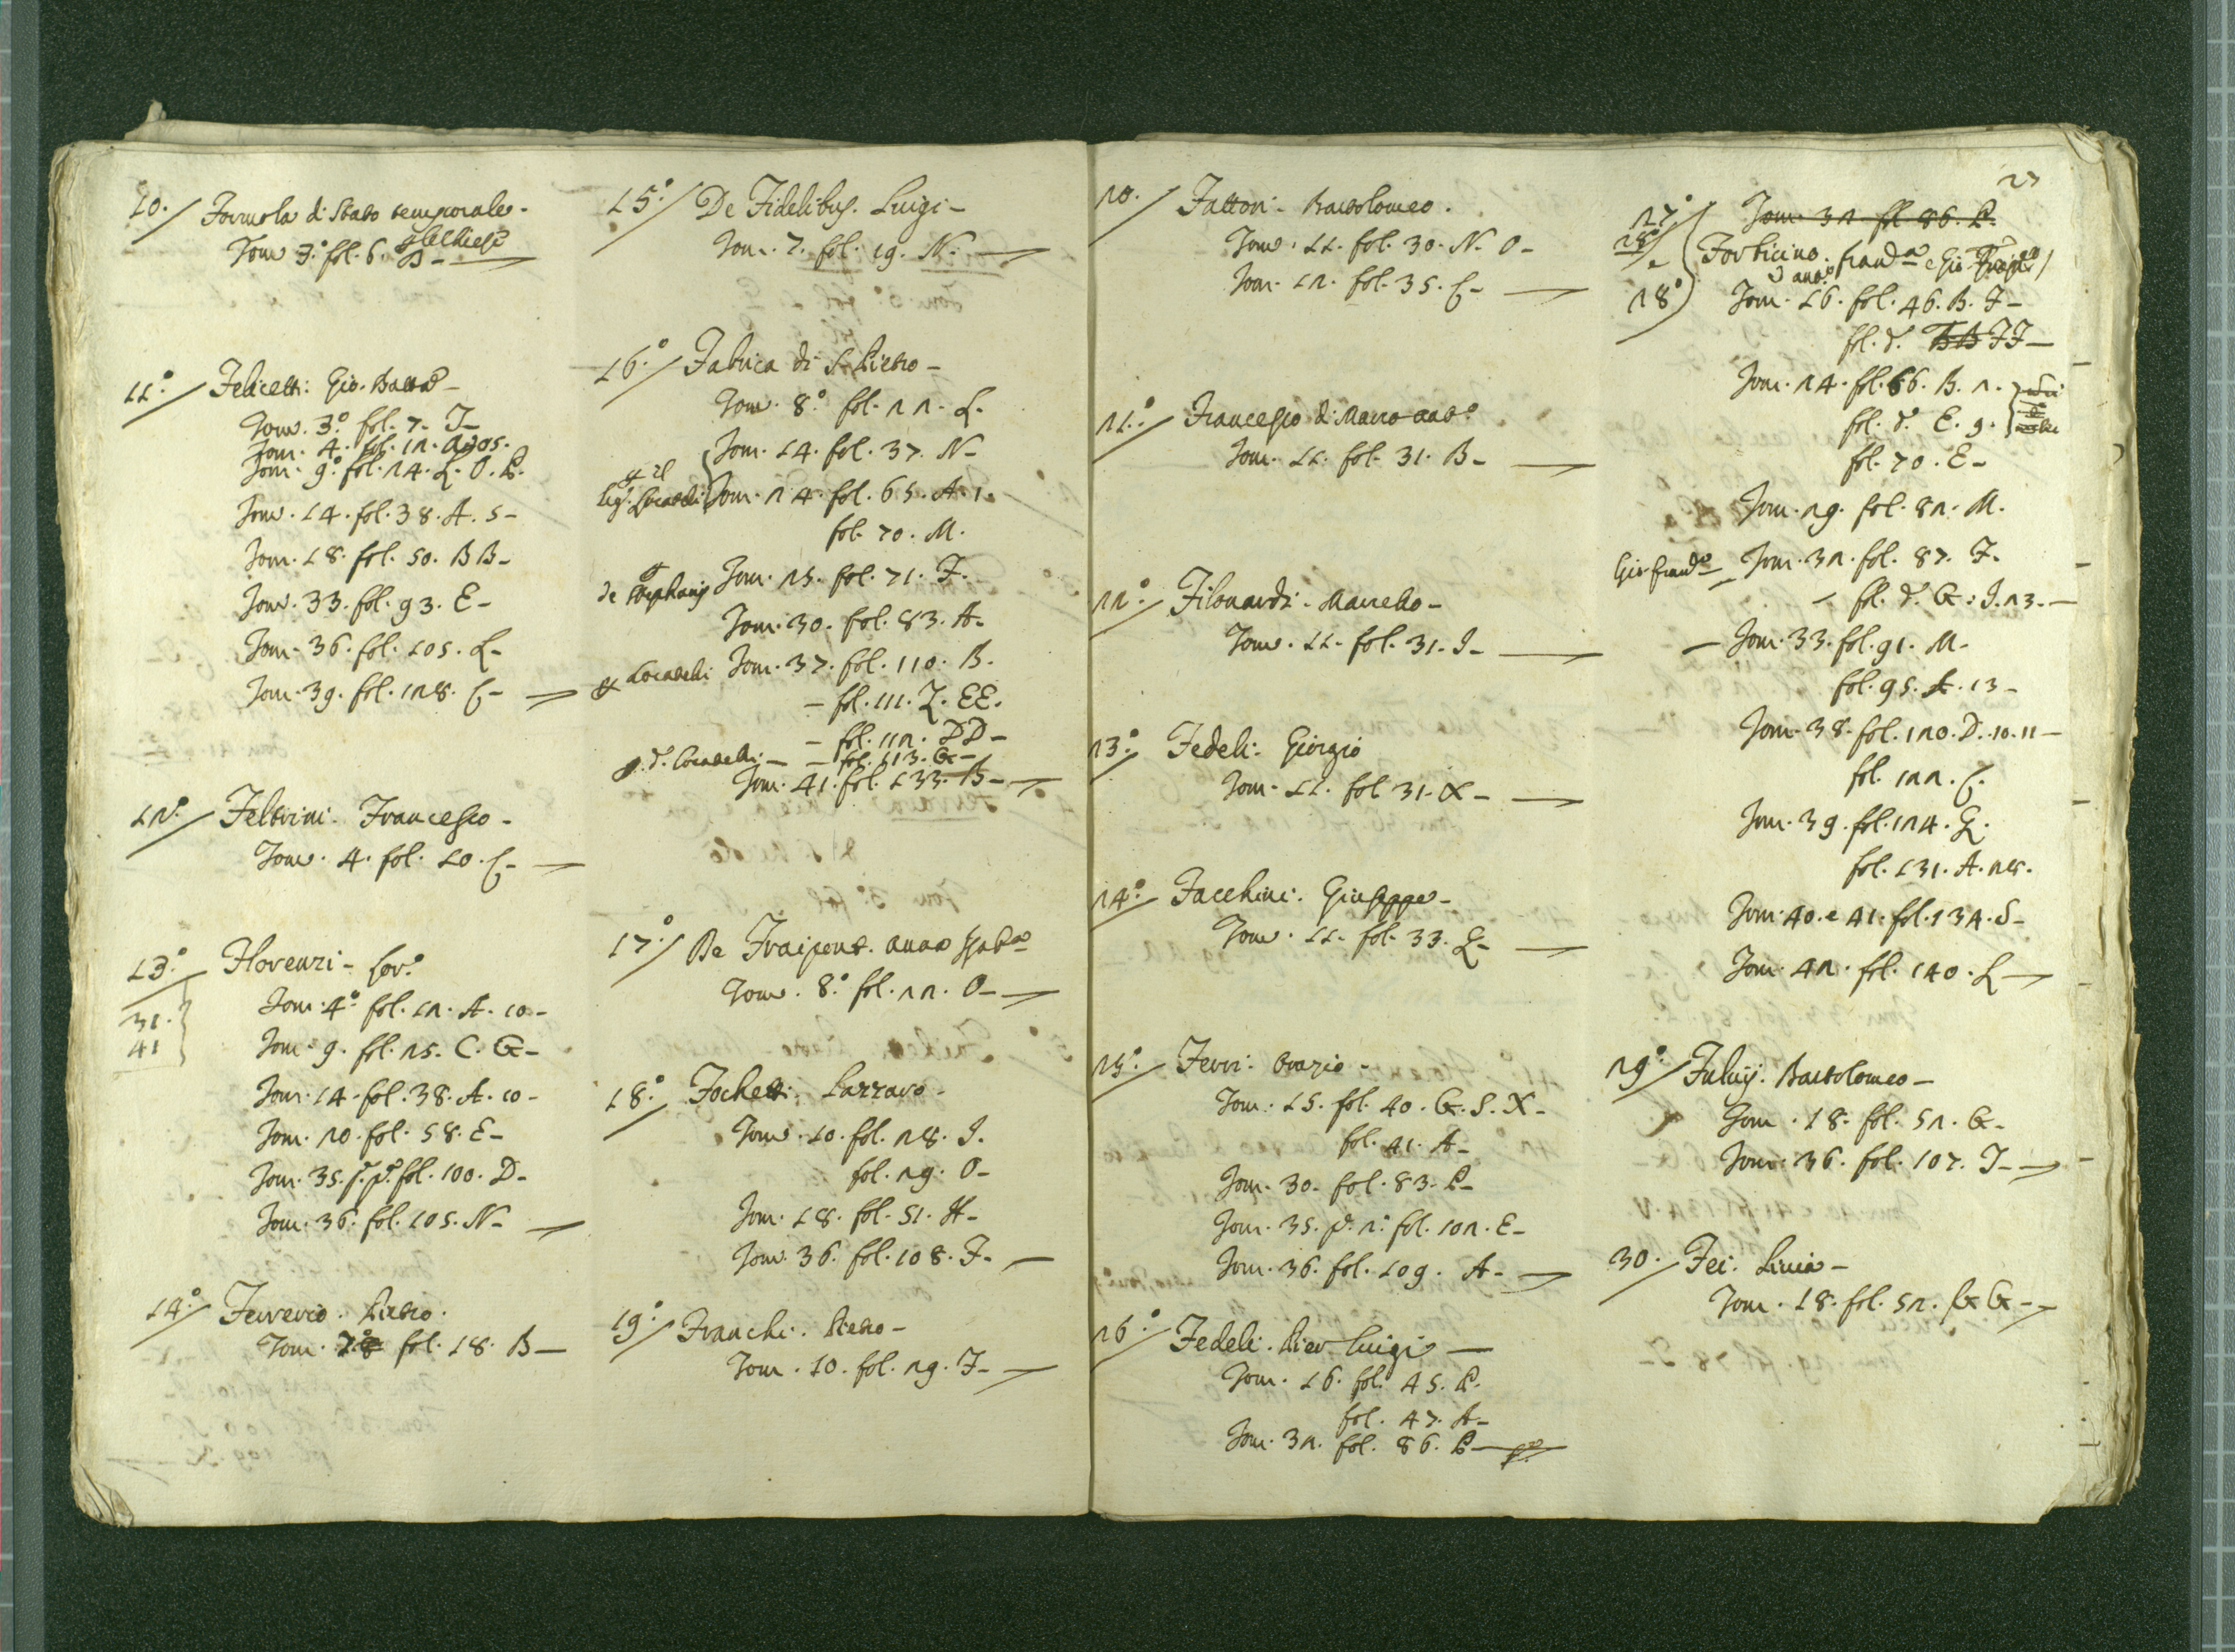 10. Formola di Stato temporale.
Tom 3.° fol. 6. B-
11.° Felicetti: Gio. Batta
Tom. 3.° fol. 7. I-
Tom. 4. fol. 12.
Tom. 9.° fol. 24. L. O. P.
Tom. 14. fol. 38. A. 5-
Tom. 18. fol. 50. BB-
Tom. 33. fol. 93. E-
Tom. 36. fol. 105. L-
Tom. 39. fol. 128. C-
12.° Feltrini. Francesco-
Tom. 4. fol. 10. C-
13.° Florenzi- Lor.°
31.
41
Tom. 4.° fol. 12. A. 10-
Tom. 9. fol. 25. C. G-
Tom. 14. fol. 38. A. 10-
Tom. 20. fol. 58. E-
Tom. 35. p. p.° fol. 100. D-
Tom. 36. fol. 105. N-
14.° Ferrerio. Pietro.
Tom. 7.° fol. 18. B-
15.° De Fidelibus. Luigi-
Tom. 7. fol. 19. N.-
16.° Fabrica di S. Pietro-
Tom. 8.° fol. 22. L.
Tom. 14. fol. 37. N-
Tom. 24. fol. 65. A. 1.
fol. 70. M.
Tom. 25. fol. 71. F.
Tom. 30. fol. 83. A-
Locatelli Tom. 37. fol. 110. B.
- fol. 111. Z. EE.
- fol. 112. DD-
d. Locatelli - - fol. 113. G-
Tom. 41. fol. 133. B-
17.° De Fraipont. Anna
Tom. 8.° fol. 22. O-
18.° Fochetti. Lazzaro-
Tom. 10. fol. 28. I.
fol. 29. O-
Tom. 18. fol. 51. H-
Tom. 36. fol. 108. F-
19.° Franchi. Pietro-
Tom. 10. fol. 29. F-
20. Fattori- Bartolomeo.
Tom. 11. fol. 30. N. O-
Tom. 12. fol. 35. C-
21.° Francesco di Marco
Tom. 11. fol. 31. B-
22.° Filonardi- Marcello-
Tom. 11. fol. 31. I-
23.° Fedeli. Giorgio
Tom. 11. fol 31. X-
24.° Facchini. Giuseppe-
Tom. 11. fol. 33. Z-
25.° Ferri. Orazio-
Tom. 15. fol. 40. G. S. X-
fol. 41. A-
Tom. 30. fol. 83. P-
Tom. 35. p. 2.° fol. 102. E-
Tom. 36. fol. 109. A-
26.° Fedeli. Pier Luigi-
Tom. 16. fol. 45. P.
fol. 47. A-
Tom. 32. fol. 86. P-
27
27.° Tom. 32 fol 86. P.
28 e Forticino.
28.° Tom. 16. fol. 46. B. F-
fol. d. BB FF-
Tom. 24. fol. 66. B. 2.
fol. d. E. 9.
fol. 70. E-
Tom. 29. fol. 82. M.
Tom. 32. fol. 87. F.
- fol. d. G. I. 23.-
- Tom. 33. fol. 91. M-
fol. 95. A. 13-
Tom. 38. fol. 120. D. 10. 11-
fol. 122. C.
Tom. 39. fol. 124. Z.
fol. 131. A. 28.
Tom. 40. e 41. fol. 134. S-
Tom. 42. fol. 140. L-
29.° Fulvij. Bartolomeo-
Tom. 18. fol. 52. G-
Tom. 36. fol. 107. I-
30. Fei. Livia-
Tom. 18. fol. 52. GG-